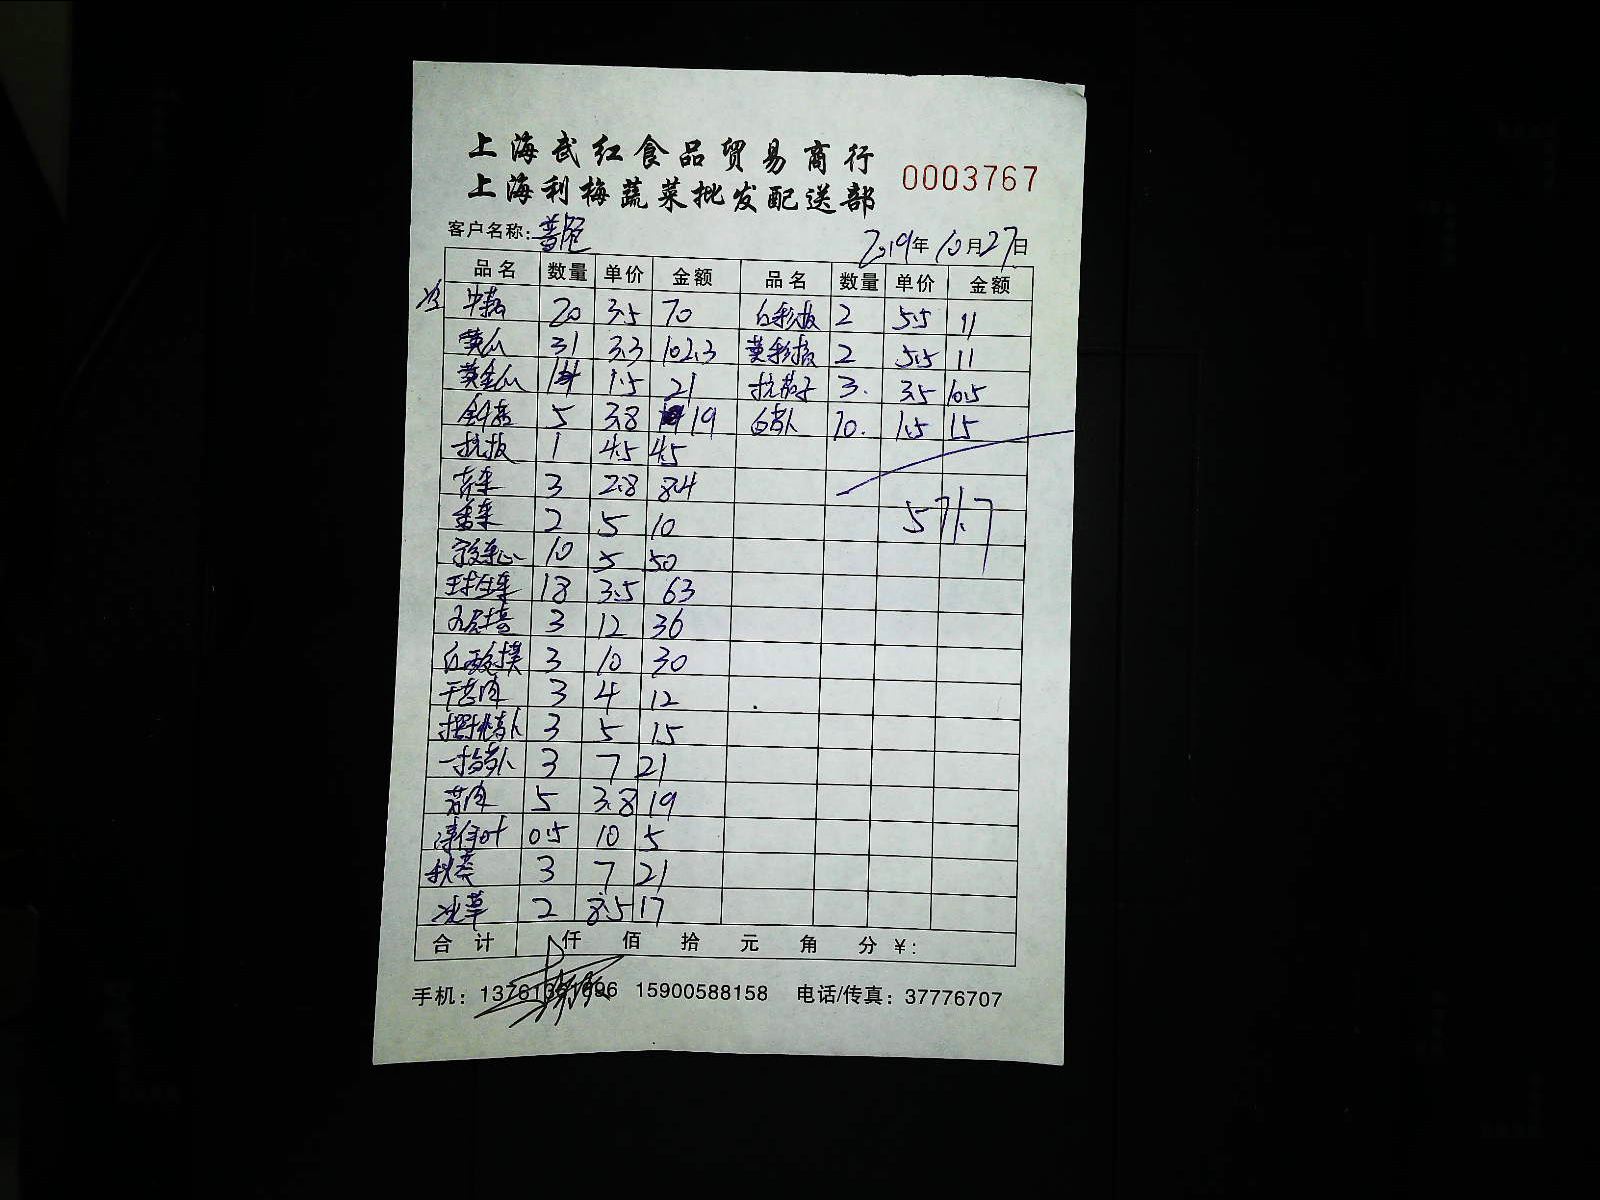 上海武红食品贸易商行
上海利梅蔬菜批发配送部
0003767
客户名称:
2019年10月27日
品名 数量 单价 金额 品名 数量 单价 金额
20 3.5 70 2 5.5 11
黄瓜 31 3.3 102.3 2 5.5 11
黄金瓜 14 1.5 21 杭茄子 3. 3.5 10.5
5 3.8 19 白萝卜 10. 1.5 15
杭椒 1 4.5 4.5
3 2.8 8.4
香菜 2 5 10
10 5 50
球生菜 18 3.5 63 571.7
3 12 36
3 10 30
3 4 12
3 5 15
3 7 21
5 3.8 19
0.5 10 5
秋葵 3 7 21
冰草 2 8.5 17
合计 仟 佰 拾 元 角 分 ¥:
手机: 15900588158 电话/传真: 37776707